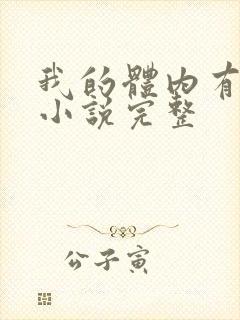 我的體內有
小說完整
公子寅